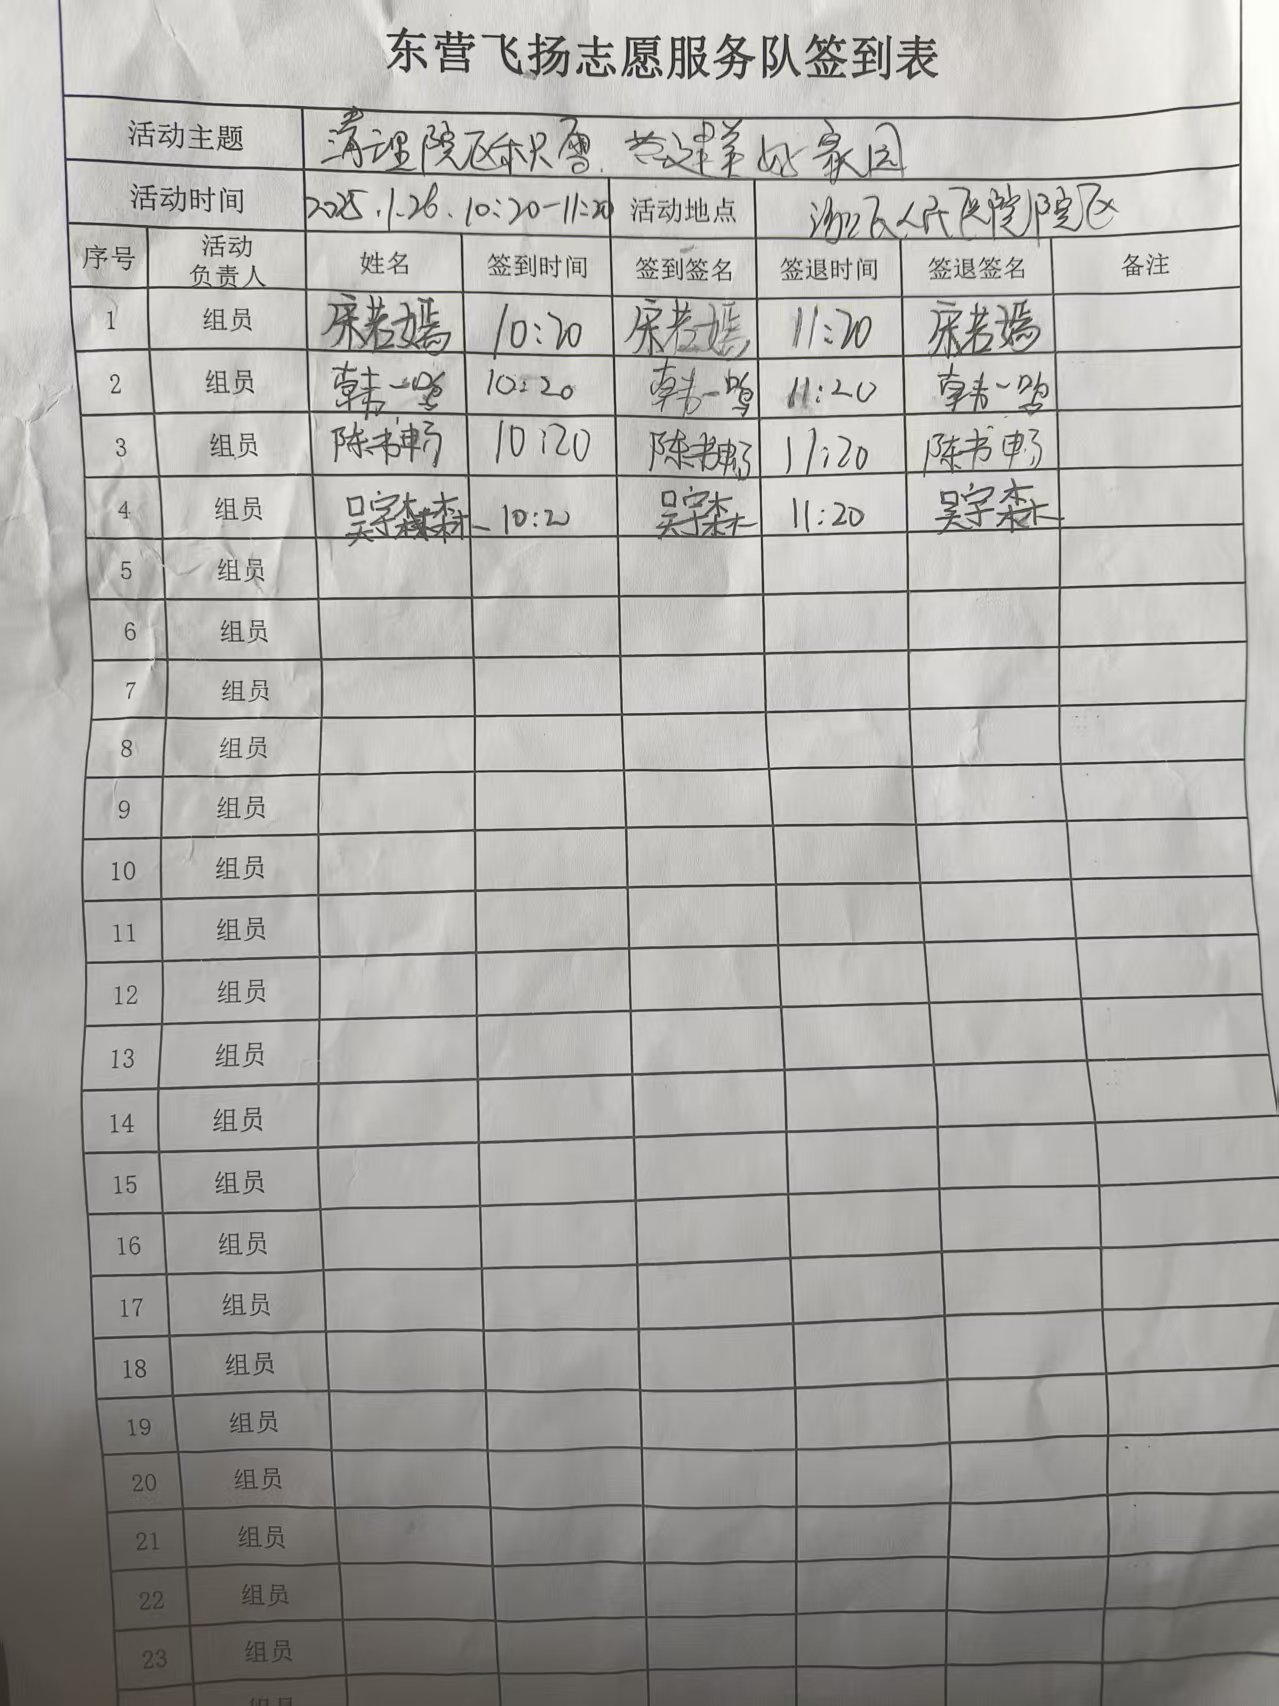 东营飞扬志愿服务队签到表
活动主题 清理院区积雪，共建美好家园
活动时间 2025.1.26.10:20-11:20 活动地点 人民医院院区
序号 活动负责人 姓名 签到时间 签到签名 签退时间 签退签名 备注
1 组员 宋若嫣 10:20 宋若嫣 11:20 宋若嫣
2 组员 韩一鸣 10:20 韩一鸣 11:20 韩一鸣
3 组员 陈书畅 10:20 陈书畅 11:20 陈书畅
4 组员 吴宇森 10:20 吴宇森 11:20 吴宇森
5 组员
6 组员
7 组员
8 组员
9 组员
10 组员
11 组员
12 组员
13 组员
14 组员
15 组员
16 组员
17 组员
18 组员
19 组员
20 组员
21 组员
22 组员
23 组员
组员